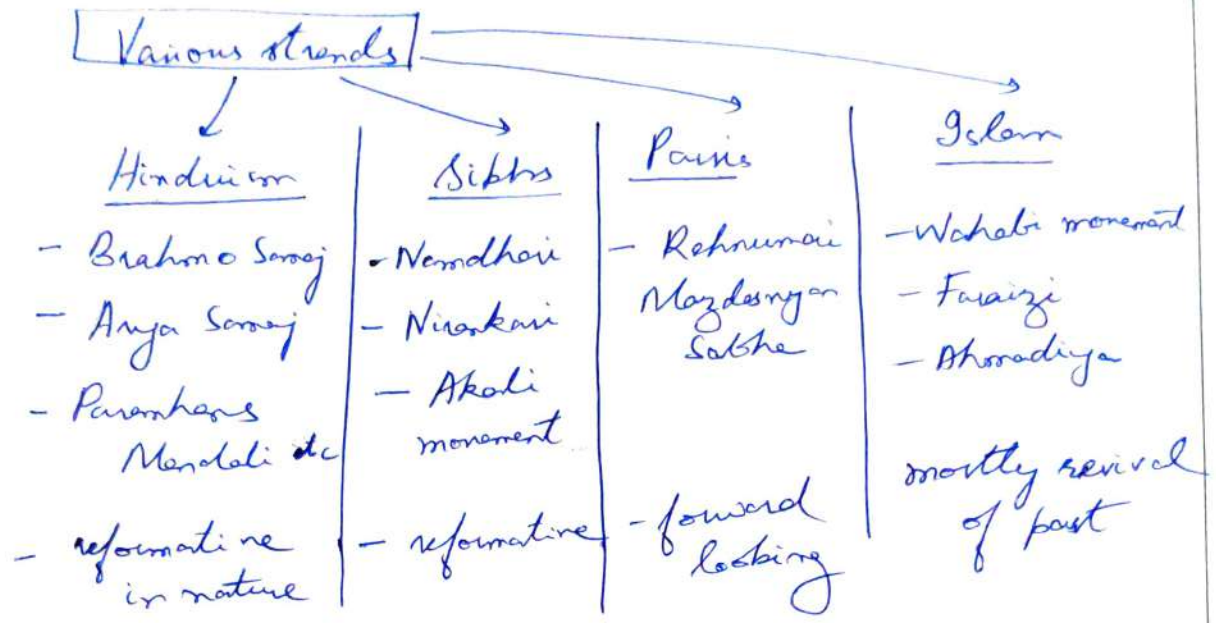 Various strands
Hinduism
- Brahmo Samaj
- Arya Samaj
- Paramhans
Mandali etc
- reformative
in nature
Sikhs
- Namdhari
- Nirankari
- Akali
movement
- reformative
Parsis
- Rehnumai
Mazdasnyan
Sabha
- forward
looking
Islam
- Wahabi movement
- Faraizi
- Ahmadiya
mostly revival
of past